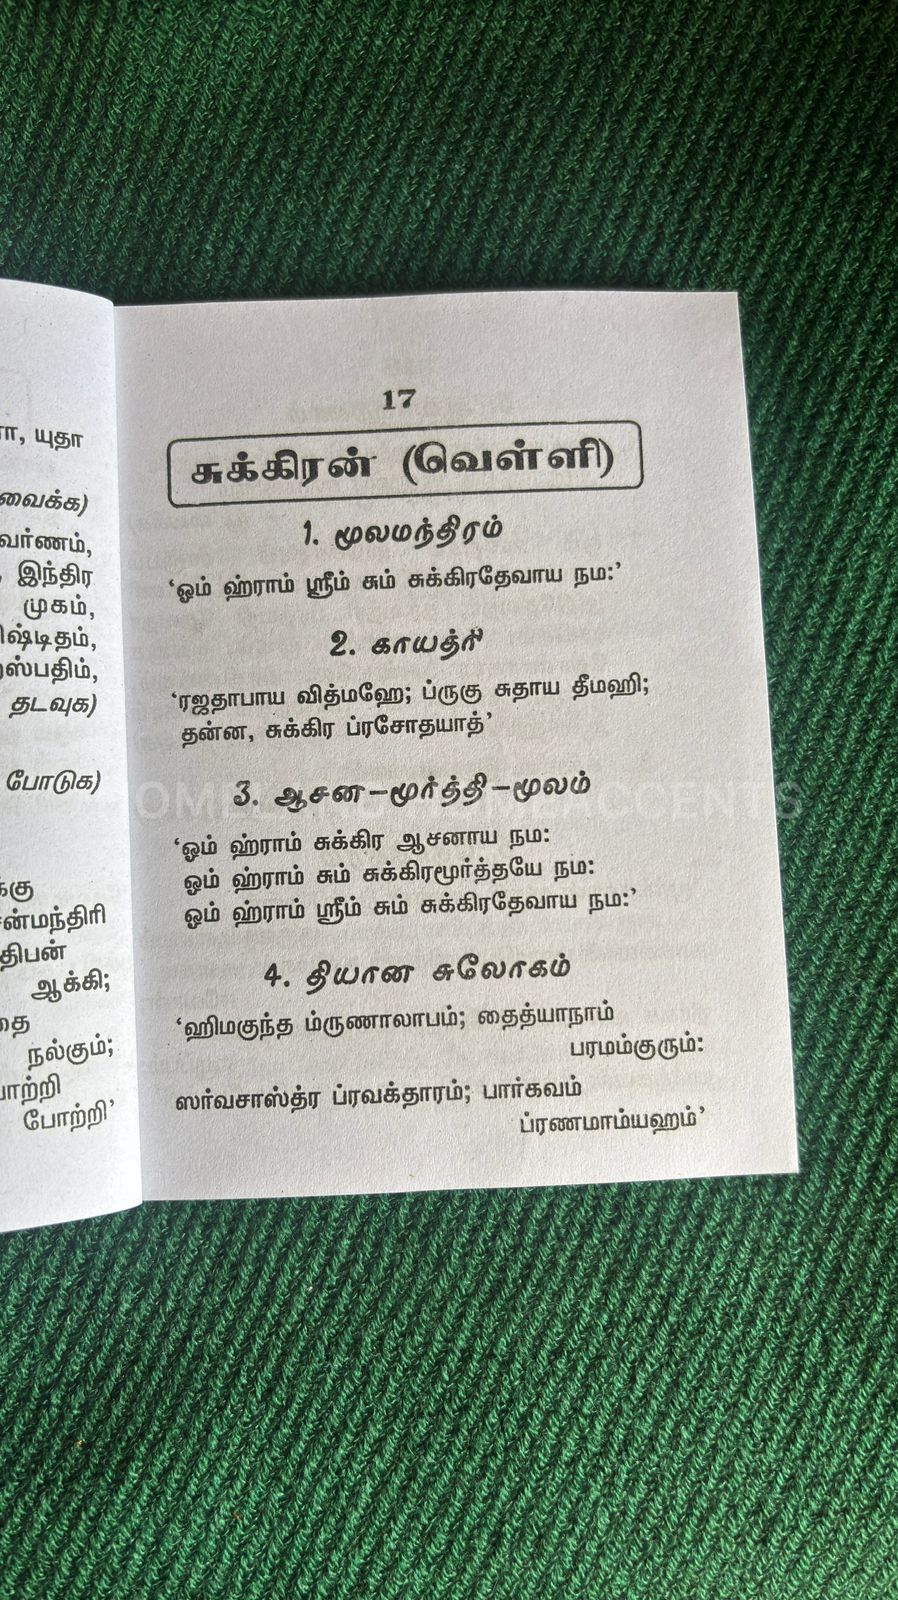 யுதா
வைக்க)
இந்திர
முகம்,
தடவுக)
போடுக)
ஆக்கி;
நல்கும்;
போற்றி’
17
சுக்கிரன் (வெள்ளி)
1. மூலமந்திரம்
‘ஓம் ஹ்ராம் ஸ்ரீம் சும் சுக்கிரதேவாய நம:’
2. காயத்ரி
‘ரஜதாபாய வித்மஹே; ப்ருகு சுதாய தீமஹி;
தன்ன, சுக்கிர ப்ரசோதயாத்’
3. ஆசன-மூர்த்தி-மூலம்
‘ஓம் ஹ்ராம் சுக்கிர ஆசனாய நம:
ஓம் ஹ்ராம் சும் சுக்கிரமூர்த்தயே நம:
ஓம் ஹ்ராம் ஸ்ரீம் சும் சுக்கிரதேவாய நம:’
4. தியான சுலோகம்
‘ஹிமகுந்த ம்ருணாலாபம்; தைத்யாநாம்
பரமம்குரும்:
ஸர்வசாஸ்த்ர ப்ரவக்தாரம்; பார்கவம்
ப்ரணமாம்யஹம்’